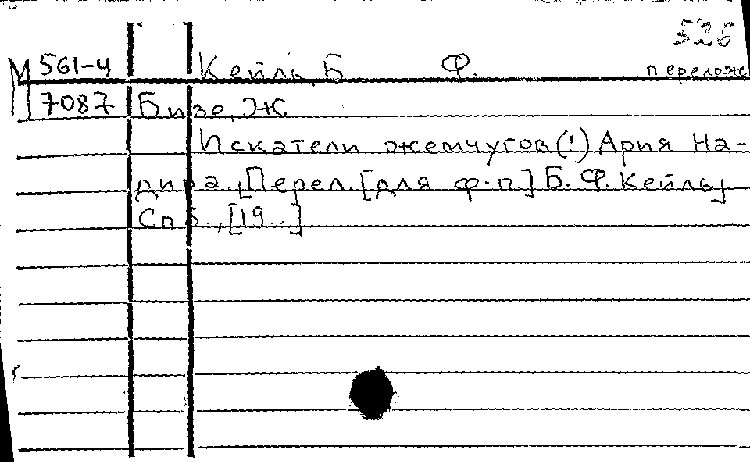 526
М 561-4 Кейль, Б. Ф. переложе
7087 Бизе, Ж.
Искатели жемчугов (!) Ария На-
дира. [Перел. [для ф-п] Б. Ф. Кейль]
Спб., [19..]